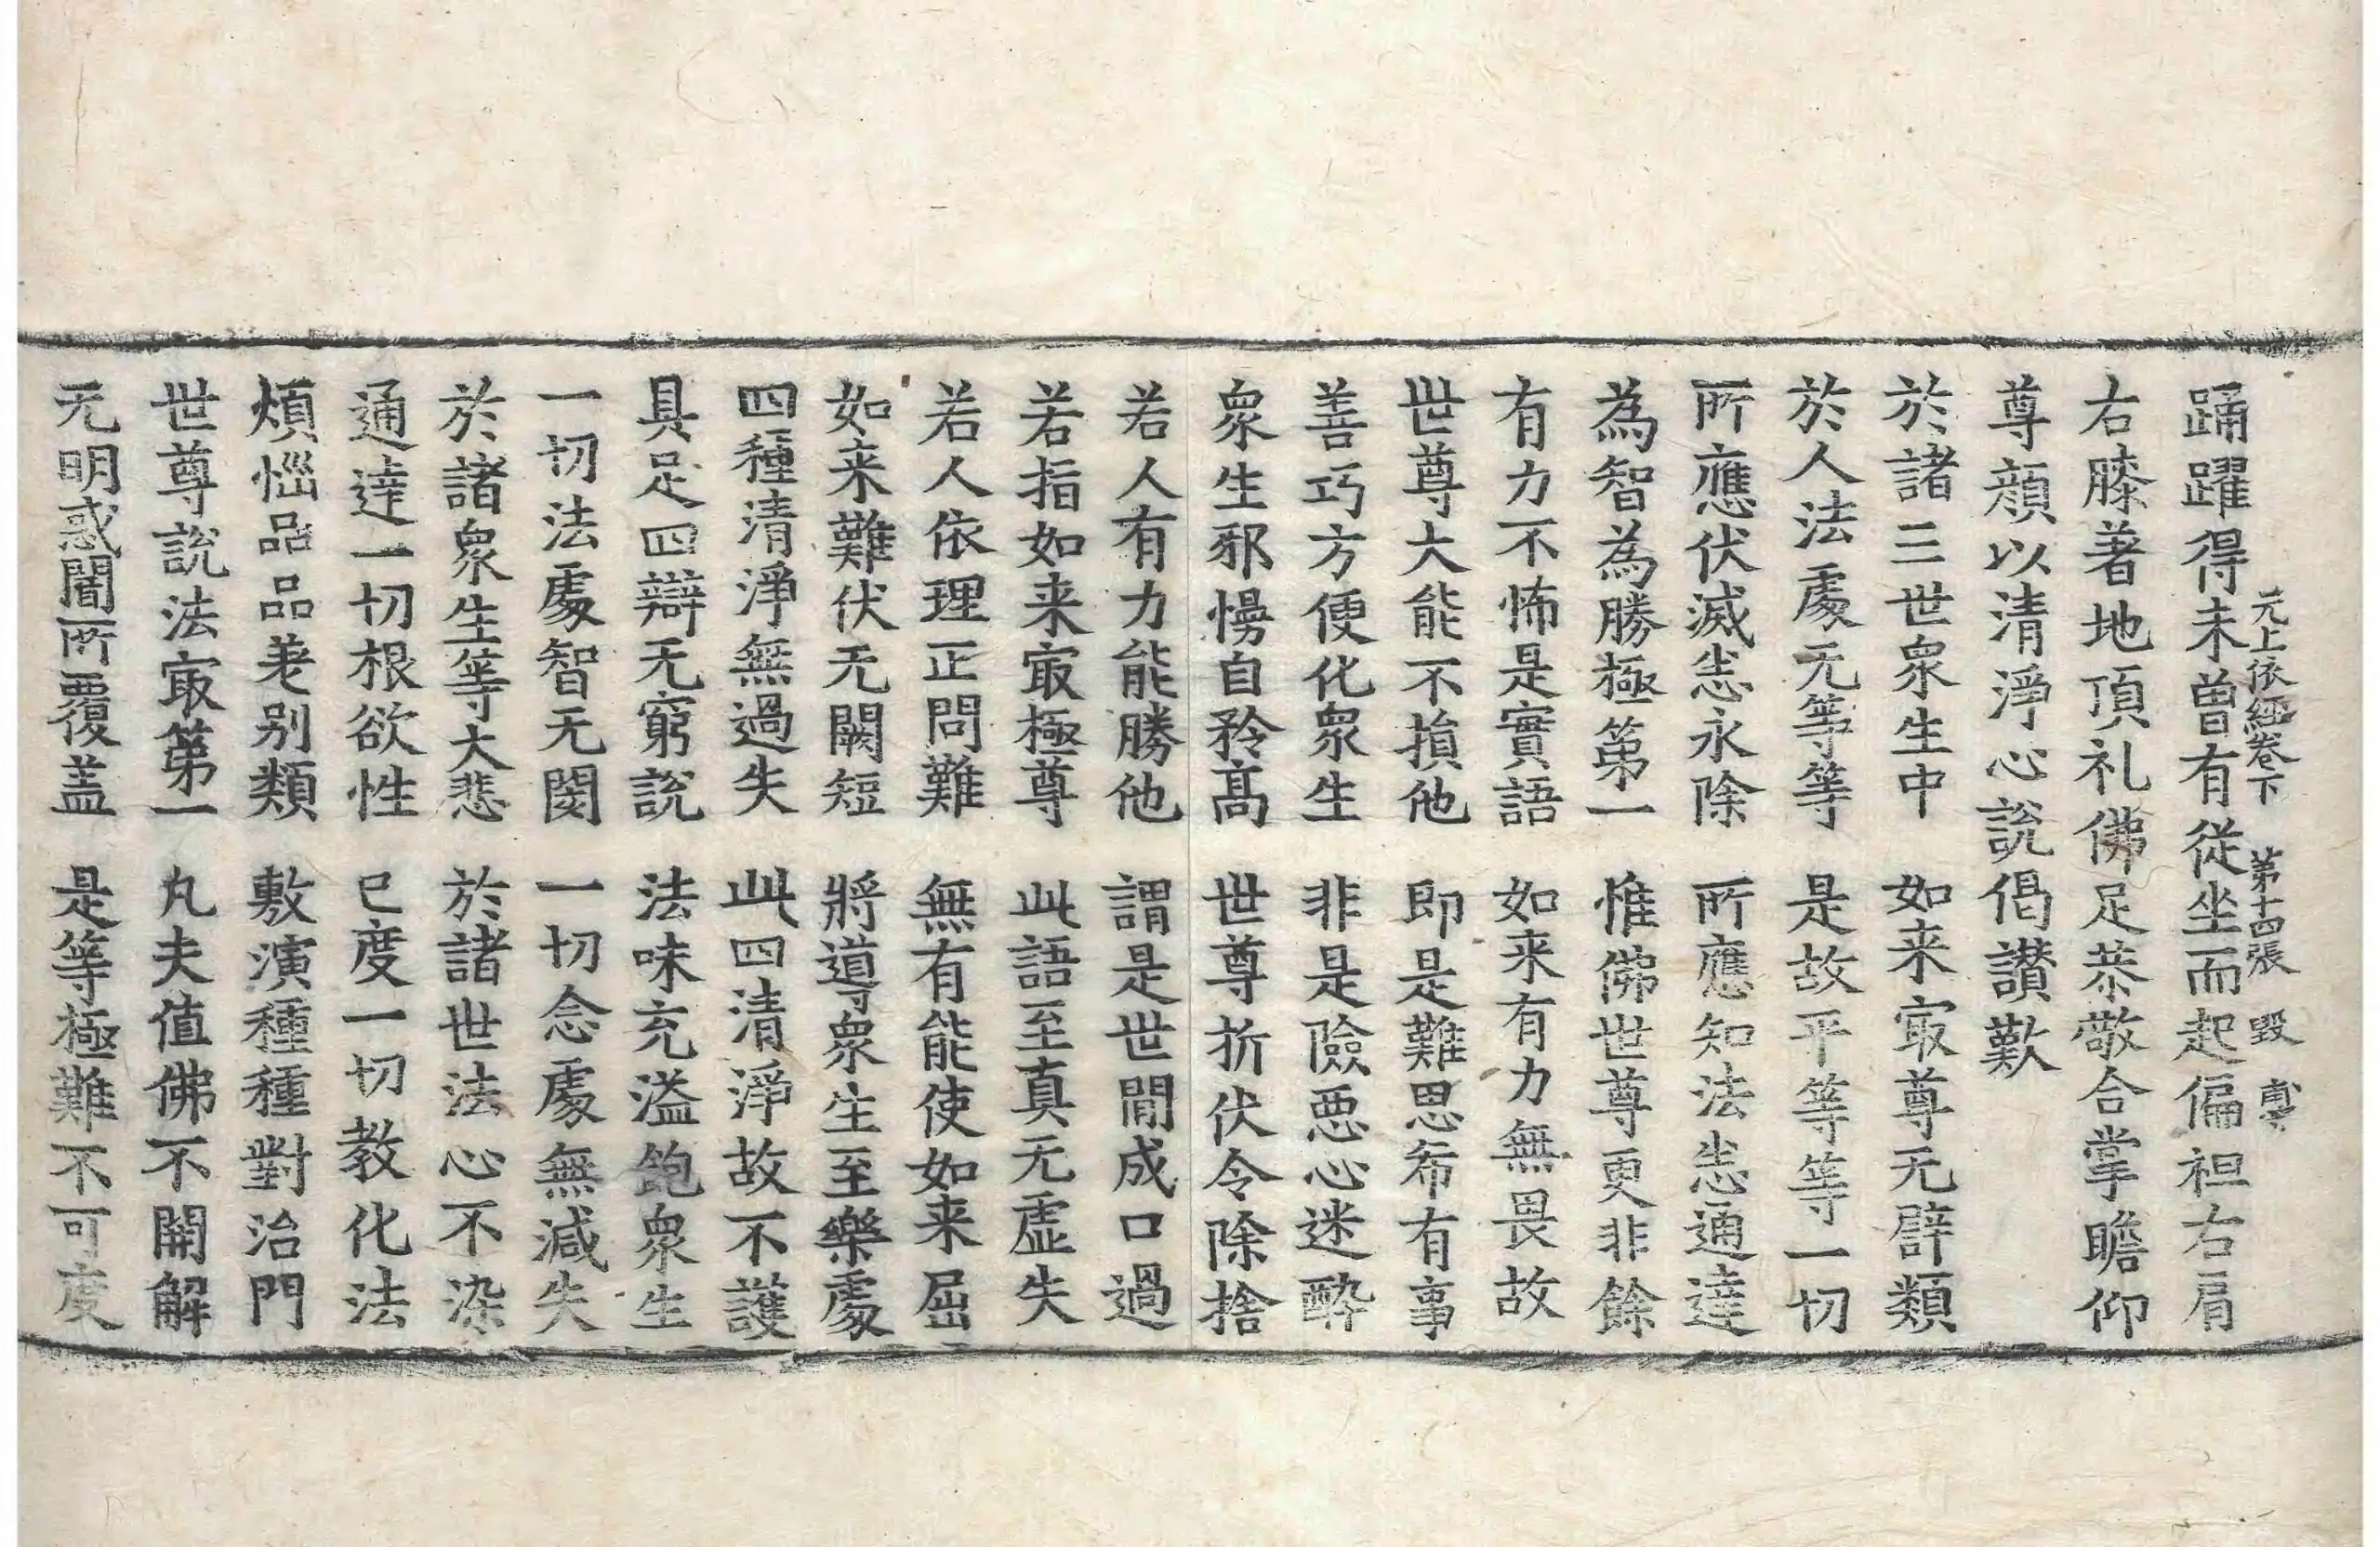 无上依經卷下　第十四張　毀
踊躍得未曾有從坐而起偏袒右肩
右膝著地頂礼佛足恭敬合掌瞻仰
尊顔以清淨心說偈讃歎
於諸三世衆生中　如来㝡尊无譬類
於人法處无等等　是故平等等一切
所應伏滅悉永除　所應知法悉通達
為智為勝極第一　惟佛世尊更非餘
有力不怖是實語　如来有力無畏故
世尊大能不損他　即是難思希有事
善巧方便化衆生　非是險惡心迷醉
衆生邪慢自矜髙　世尊折伏令除捨
若人有力能勝他　謂是世間成口過
若指如来㝡極尊　此語至真无虛失
若人依理正問難　無有能使如来屈
如来難伏无闕短　將導衆生至樂處
四種清淨無過失　此四清淨故不護
具足四辯无窮說　法味充溢飽衆生
一切法處智无閡　一切念處無減失
於諸衆生等大悲　於諸世法心不染
通達一切根欲性　已度一切教化法
煩惱品品差别類　敷演種種對治門
世尊說法㝡第一　凡夫值佛不開解
无明惑闇所覆盖　是等極難不可度